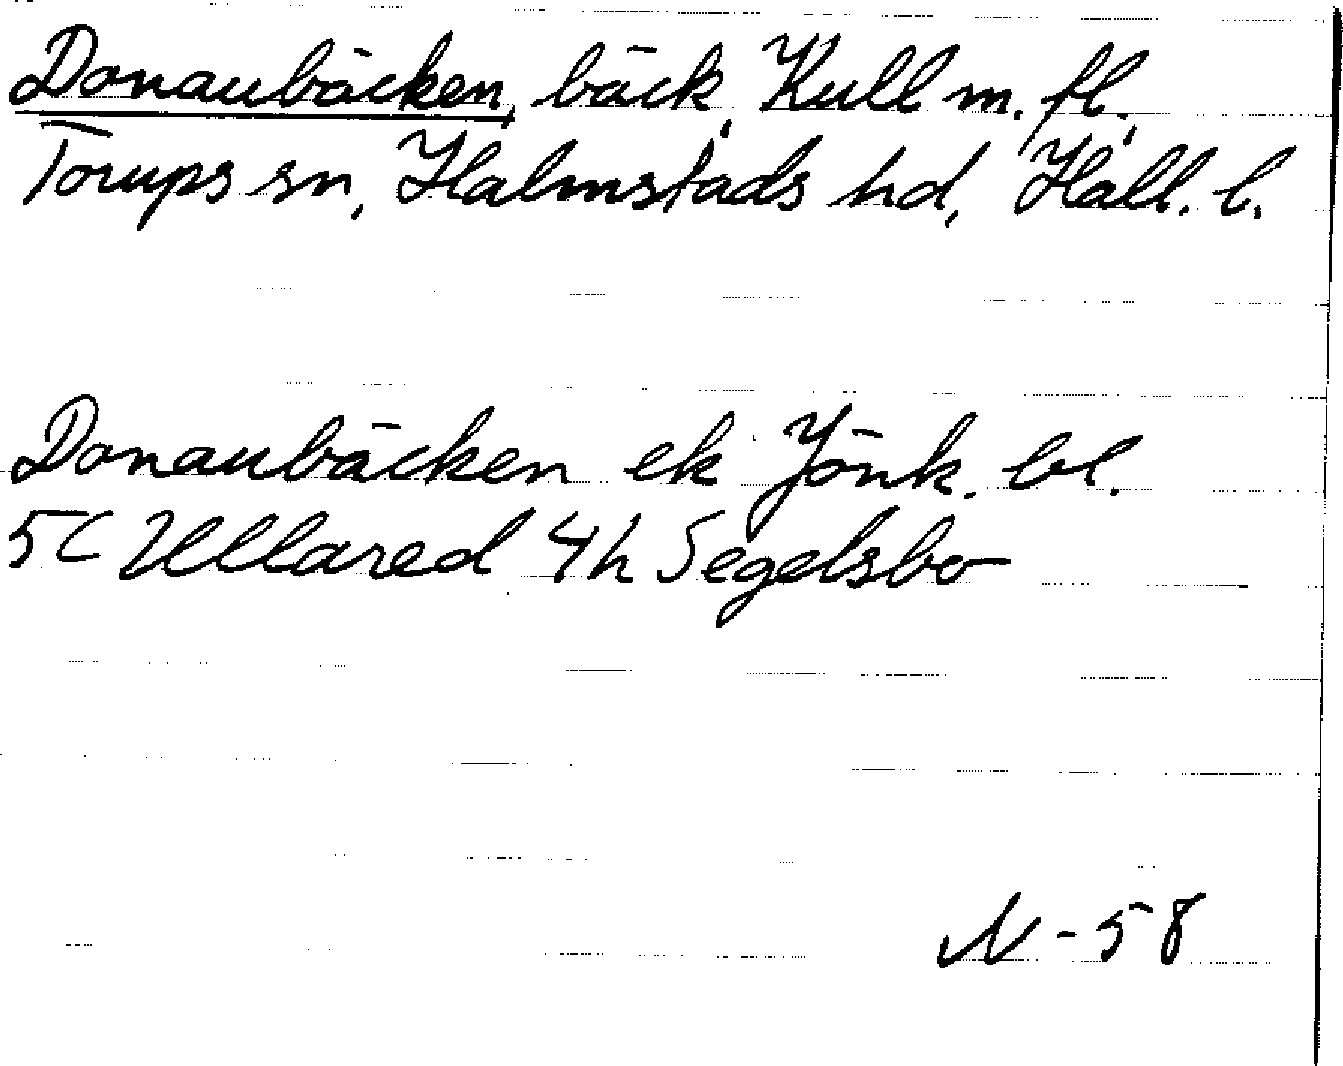 Donaubäcken, bäck, Kull m. fl.,
Torups sn, Halmstads hd, Hall. l.
Donaubäcken ek Jönk. bl.
5C Ullared 4h Segelsbo
N-58